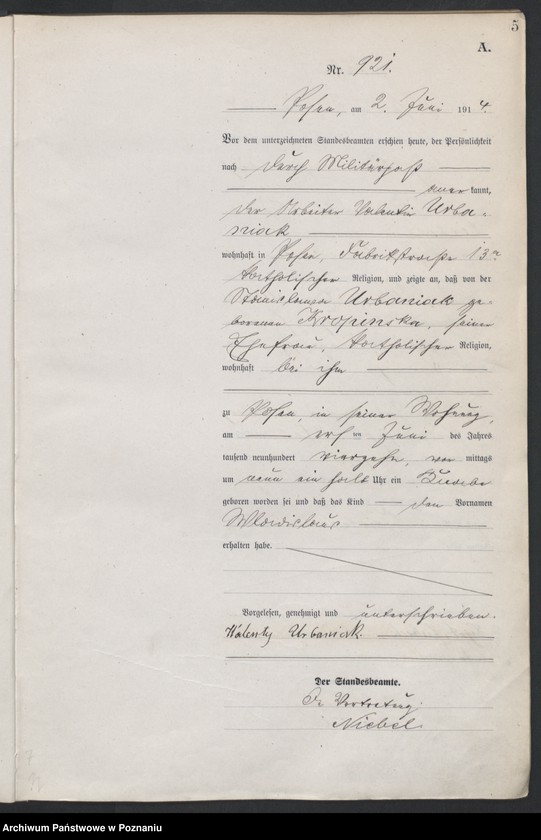 5
A.
Nr. 921.
Posen, am 2. Juni 1914.
Vor dem unterzeichneten Standesbeamten erschien heute, der Persönlichkeit
nach durch Militärpaß
aner kannt,
der Arbeiter Valentin Urba-
niak
wohnhaft in Posen, Fabrikstraße 13
katholischer Religion, und zeigte an, daß von der
Stanislawa Urbaniak ge-
borenen Kropinska, seiner
Ehefrau, katholischer Religion,
wohnhaft bei ihm
zu Posen, in seiner Wohnung,
am ersten Juni des Jahres
tausend neunhundert vierzehn, vor mittags
um neun ein halb Uhr ein Knabe
geboren worden sei und daß das Kind den Vornamen
Wladislaus
erhalten habe.
Vorgelesen, genehmigt und unterschrieben.
Walenty Urbaniak.
Der Standesbeamte.
In Vertretung.
Niebel
Archiwum Państwowe w Poznaniu